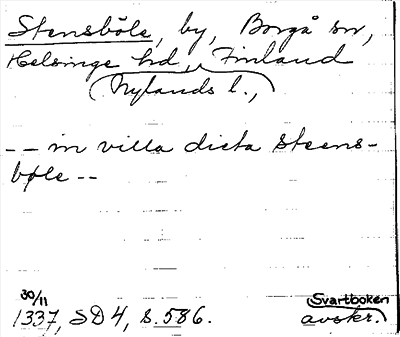 Stensböle, by, Borgå sn,
Helsinge hd, Finland
(Nylands l.,)
-- in villa dicta Steens-
bøle --
30/11
1337, SD 4, s. 586.
Svartboken
avskr.